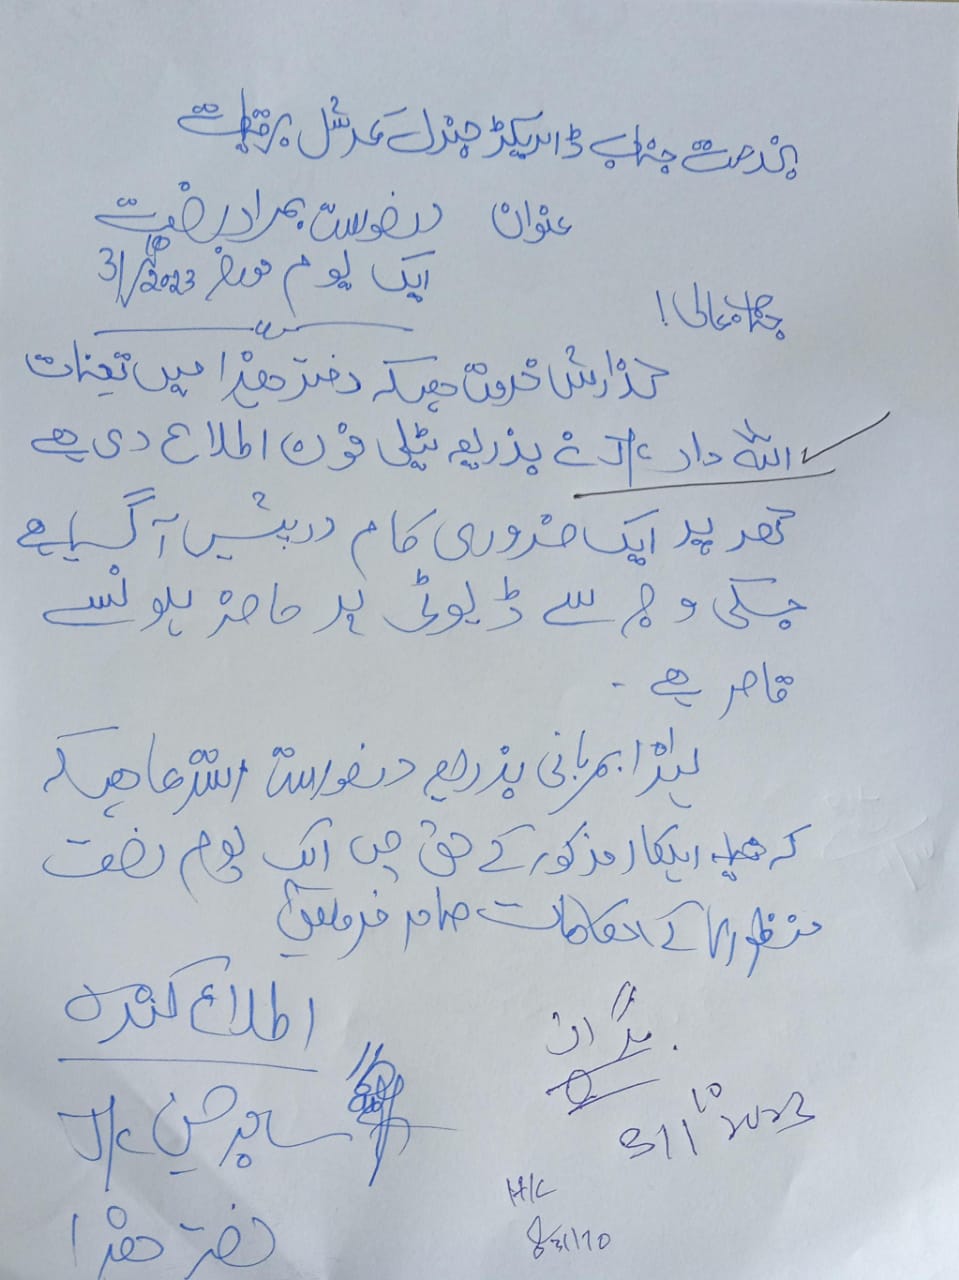 بخدمت جناب ڈائریکٹر جنرل
عنوان درخواست بمراد رخصت
ایک یوم مورخہ 31/10/2023
جناب عالی!
گذارش خدمت ہیکہ دفتر ھذا میں تعینات
اللہ داد J/C نے بذریعہ ٹیلی فون اطلاع دی ہے
گھر پر ایک ضروری کام درپیش آ گیا ہے
جسکی وجہ سے ڈیوٹی پر حاضر ہونے سے
قاصر ہے۔
لہذا بمہربانی بذریعہ درخواست استدعا ہیکہ
کہ اہلکار مذکور کے حق میں ایک یوم رخصت
منظوری کے احکامات صادر فرمائیں
اطلاع کنندہ
حسین J/C
دفتر ھذا
نگران
31/10/2023
H/C
31/10